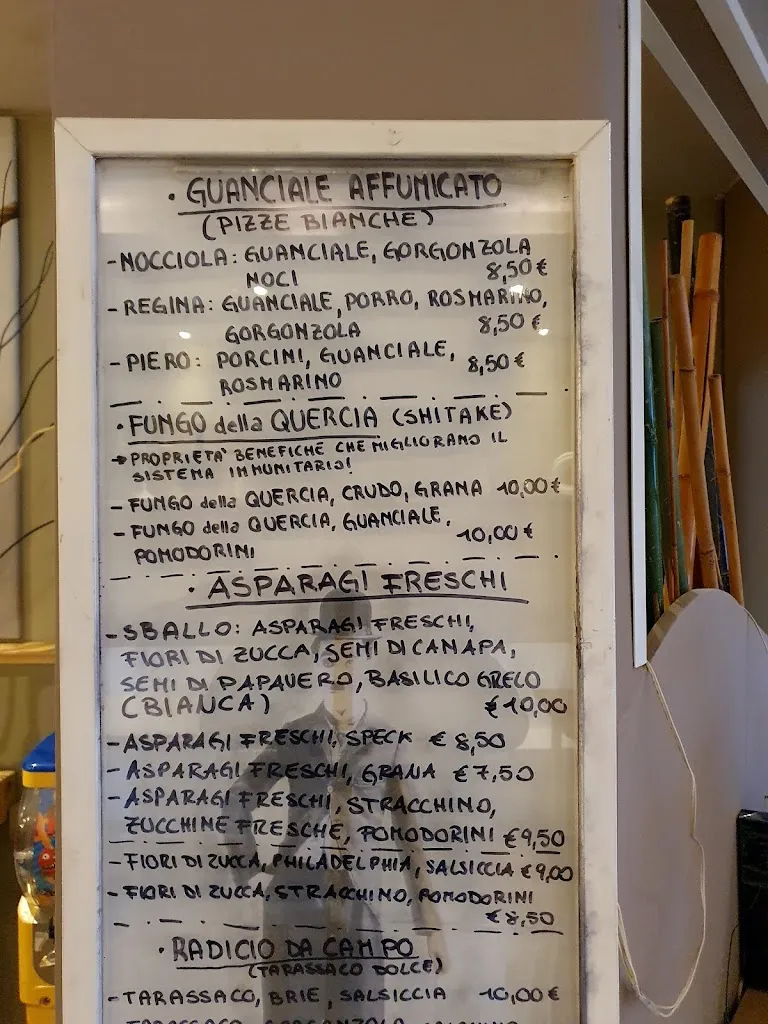 · GUANCIALE AFFUMICATO
(PIZZE BIANCHE)
- NOCCIOLA: GUANCIALE, GORGONZOLA
NOCI 8,50 €
- REGINA: GUANCIALE, PORRO, ROSMARINO,
GORGONZOLA 8,50 €
- PIERO: PORCINI, GUANCIALE, 8,50 €
ROSMARINO
· FUNGO della QUERCIA (SHITAKE)
→ PROPRIETA' BENEFICHE CHE MIGLIORANO IL
SISTEMA IMMUNITARIO!
- FUNGO della QUERCIA, CRUDO, GRANA 10,00 €
- FUNGO della QUERCIA, GUANCIALE, 10,00 €
POMODORINI
· ASPARAGI FRESCHI
- SBALLO: ASPARAGI FRESCHI,
FIORI DI ZUCCA, SEMI DI CANAPA,
SEMI DI PAPAVERO, BASILICO GRECO
(BIANCA) € 10,00
- ASPARAGI FRESCHI, SPECK € 8,50
- ASPARAGI FRESCHI, GRANA € 7,50
- ASPARAGI FRESCHI, STRACCHINO,
ZUCCHINE FRESCHE, POMODORINI € 9,50
- FIORI DI ZUCCA, PHILADELPHIA, SALSICCIA € 9,00
- FIORI DI ZUCCA, STRACCHINO, POMODORINI
€ 8,50
· RADICIO DA CAMPO
(TARASSACO DOLCE)
- TARASSACO, BRIE, SALSICCIA 10,00 €